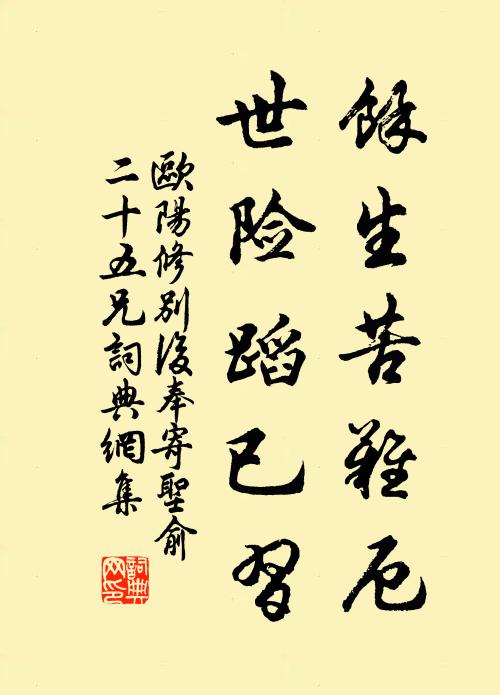 餘生苦難厄
世险蹈已習
歐陽修别後奉寄聖俞
二十五兄詞典網集
詞典网印